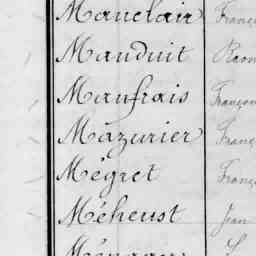 Mauclair Franç
Mauduit Raom
Maufrais François
Mazurier Franç
Mégret Franç
Méheust Jean
Ménager